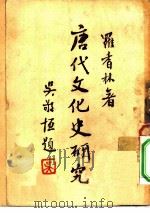 羅香林著
唐代文化史研究
吳敬恒題